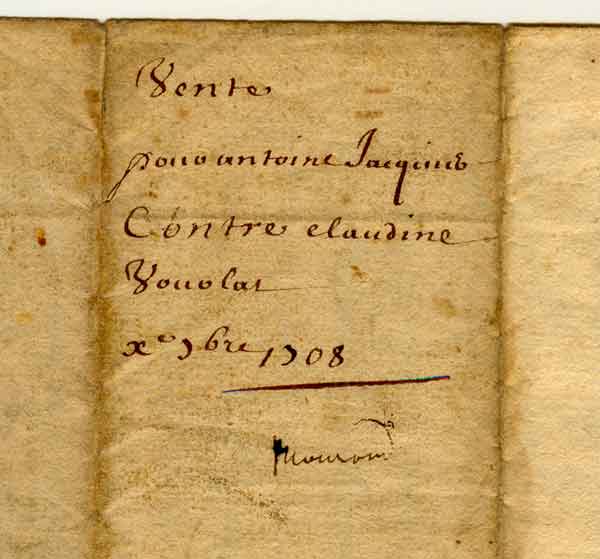 Vente
pour antoine Jacquius
Contre claudine
Vouolat
xe 9bre 1708